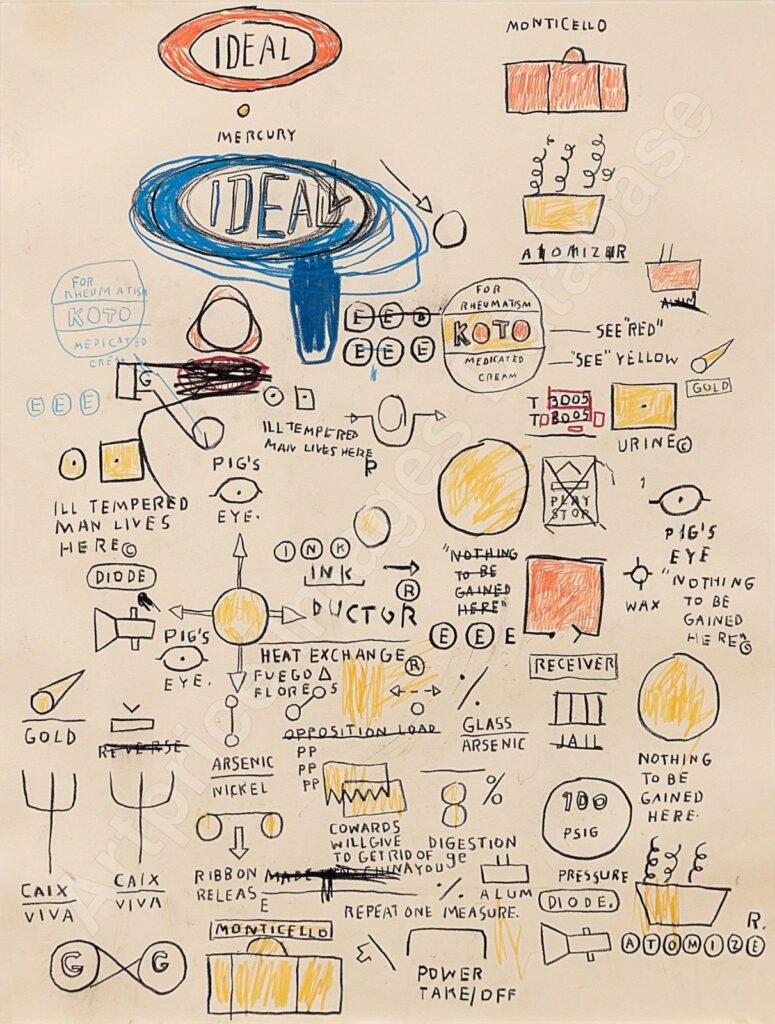 IDEAL
MONTICELLO
MERCURY
IDEAL
ATOMIZER
ALUM
FOR
RHEUMATISM
KOTO
MEDICATED
CREAM
FOR
RHEUMATISM
KOTO
MEDICATED
CREAM
SEE "RED"
"SEE" YELLOW
GOLD
E E B
E E E
G
E E E
T 3005
T 3005
URINE©
ILL TEMPERED
MAN LIVES HERE
PIG'S
EYE.
PLAY
STOP
ILL TEMPERED
MAN LIVES
HERE©
PIG'S
EYE
DIODE
I N K
INK
DUCTOR
R
"NOTHING
TO BE
GAINED
HERE"
E E E
WAX
"NOTHING
TO BE
GAINED
HERE"©
PIG'S
EYE.
HEAT EXCHANGE R
FUEGO
FLORES
RECEIVER
GOLD
REVERSE
OPPOSITION LOAD
GLASS
ARSENIC
JAIL
ARSENIC
NICKEL
PP
PP
PP
%
NOTHING
TO BE
GAINED
HERE.
100
PSIG
COWARDS
WILL GIVE
TO GET RID OF
YOU
DIGESTION
ge
PRESSURE
CAIX
VIVA
CAIX
VIVA
RIBBON
RELEASE
MADE
CHINA
%
ALUM
DIODE.
REPEAT ONE MEASURE.
R.
ATOMIZE
MONTICELLO
G G
POWER
TAKE/OFF
Artprice Images Database